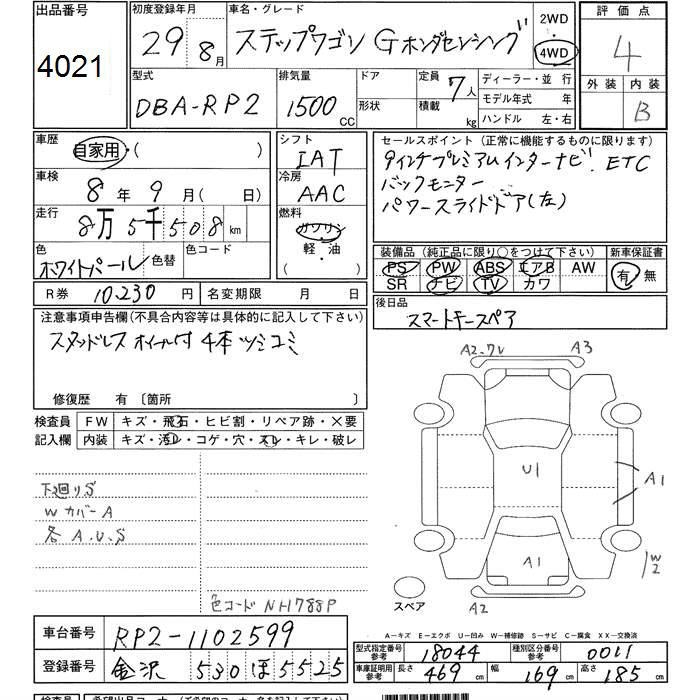 出品番号 初度登録年月 車名・グレード 2WD 評価点
4021 29 8月 ステップワゴン Gホンダセンシング 4WD 4
型式 排気量 ドア 定員 7人 ディーラー・並行 外装 内装
DBA-RP2 1500CC 形状 積載 kg モデル年式 年 B
ハンドル 左・右
車歴 自家用・( ) シフト IAT セールスポイント (正常に機能するものに限ります)
車検 8年 9月(日) 冷房 AAC 9インチプレミアムインターナビ. ETC
バックモニター
走行 8万5千508km 燃料 ガソリン・軽・油 ( ) パワースライドドア(左)
色 ホワイトパール 色替 色コード 装備品 (純正品に限り○をつけて下さい) 新車保証書
PS PW ABS エアB AW 有 無
SR ナビ TV カワ
R券 10,230円 名変期限 月 日 後日品
スマートキースペア
注意事項申告欄(不具合内容等は具体的に記入して下さい)
スタッドレス ホイール付 4本 ツミコミ
修復歴 有 〔箇所 〕
検査員 FW キズ・飛石・ヒビ割・リペア跡・×要
記入欄 内装 キズ・汚レ・コゲ・穴・スレ・キレ・破レ
A2.フU A3
U1
A1
A1
W2
A2
スペア
下廻りS
WカバーA
各A.U.S
色コード NH788P
A-キズ E-エクボ U-凹み W-補修跡 S-サビ C-腐食 XX-交換済
車台番号 RP2-1102599
登録番号 金沢 530 ほ 5525
型式指定番号 参考 18044 種別区分番号 参考 0011
車庫証明用 参考 長さ 469cm 幅 169cm 高さ 185cm